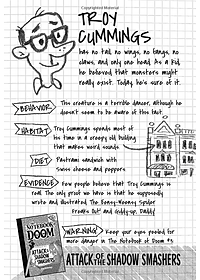 TROY
CUMMINGS
has no tail, no wings, no fangs, no
claws, and only one head. As a kid,
he believed that monsters might
really exist. Today, he's sure of it.
BEHAVIOR
This creature is a terrible dancer, although he
doesn't seem to be aware of this fact.
HABITAT
Troy Cummings spends most of
his time in a creepy old building
that makes weird sounds.
DIET
Pastrami sandwich with
Swiss cheese and peppers
EVIDENCE
Few people believe that Troy Cummings is
real. The only proof we have is that he supposedly
wrote and illustrated The Eensy-Weensy Spider
Freaks Out! and Giddy-up, Daddy!
WARNING!
Keep your eyes peeled for
more danger in The Notebook of Doom #3:
ATTACK OF THE SHADOW SMASHERS
THE
NOTEBOOK OF
DOOM
ATTACK OF THE
SHADOW
SMASHERS